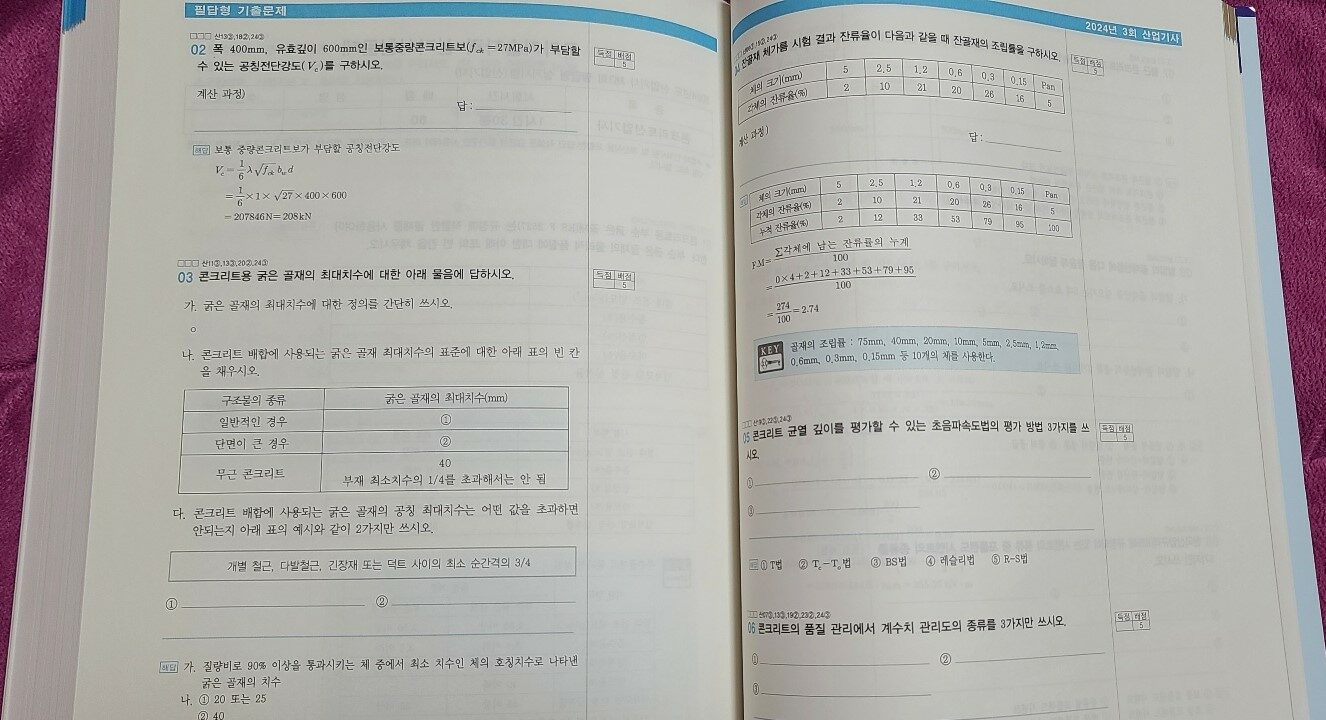 필답형 기출문제
□□□ 산13③,18②,24③
02 폭 400mm, 유효깊이 600mm인 보통중량콘크리트보(fck=27MPa)가 부담할
수 있는 공칭전단강도(Vc)를 구하시오.
득점 배점
5
계산 과정)
답 :
해답 보통 중량콘크리트보가 부담할 공칭전단강도
Vc = 1/6 λ√fck bw d
= 1/6 × 1 × √27 × 400 × 600
= 207846N = 208kN
□□□ 산11③,13③,20②,24③
03 콘크리트용 굵은 골재의 최대치수에 대한 아래 물음에 답하시오.
득점 배점
5
가. 굵은 골재의 최대치수에 대한 정의를 간단히 쓰시오.
○
나. 콘크리트 배합에 사용되는 굵은 골재 최대치수의 표준에 대한 아래 표의 빈 칸
을 채우시오.
구조물의 종류 굵은 골재의 최대치수(mm)
일반적인 경우 ①
단면이 큰 경우 ②
무근 콘크리트 40
부재 최소치수의 1/4를 초과해서는 안 됨
다. 콘크리트 배합에 사용되는 굵은 골재의 공칭 최대치수는 어떤 값을 초과하면
안되는지 아래 표의 예시와 같이 2가지만 쓰시오.
개별 철근, 다발철근, 긴장재 또는 덕트 사이의 최소 순간격의 3/4
① ②
해답 가. 질량비로 90% 이상을 통과시키는 체 중에서 최소 치수인 체의 호칭치수로 나타낸
굵은 골재의 치수
나. ① 20 또는 25
② 40
2024년 3회 산업기사
04 잔골재 체가름 시험 결과 잔류율이 다음과 같을 때 잔골재의 조립률을 구하시오.
득점 배점
5
체의 크기(mm) 5 2.5 1.2 0.6 0.3 0.15 Pan
각체의 잔류율(%) 2 10 21 20 26 16 5
계산 과정)
답 :
체의 크기(mm) 5 2.5 1.2 0.6 0.3 0.15 Pan
각체의 잔류율(%) 2 10 21 20 26 16 5
누적 잔류율(%) 2 12 33 53 79 95 100
F.M = ∑각체에 남는 잔류률의 누계 / 100
= 0×4+2+12+33+53+79+95 / 100
= 274/100 = 2.74
KEY 골재의 조립률 : 75mm, 40mm, 20mm, 10mm, 5mm, 2.5mm, 1.2mm,
0.6mm, 0.3mm, 0.15mm 등 10개의 체를 사용한다.
05 콘크리트 균열 깊이를 평가할 수 있는 초음파속도법의 평가 방법 3가지를 쓰
시오.
득점 배점
5
① ②
③
① T법 ② Tc-To법 ③ BS법 ④ 레슬리법 ⑤ R-S법
□□ 산07③,13③,19②,23②,24③
06 콘크리트의 품질 관리에서 계수치 관리도의 종류를 3가지만 쓰시오.
득점 배점
5
① ②
③